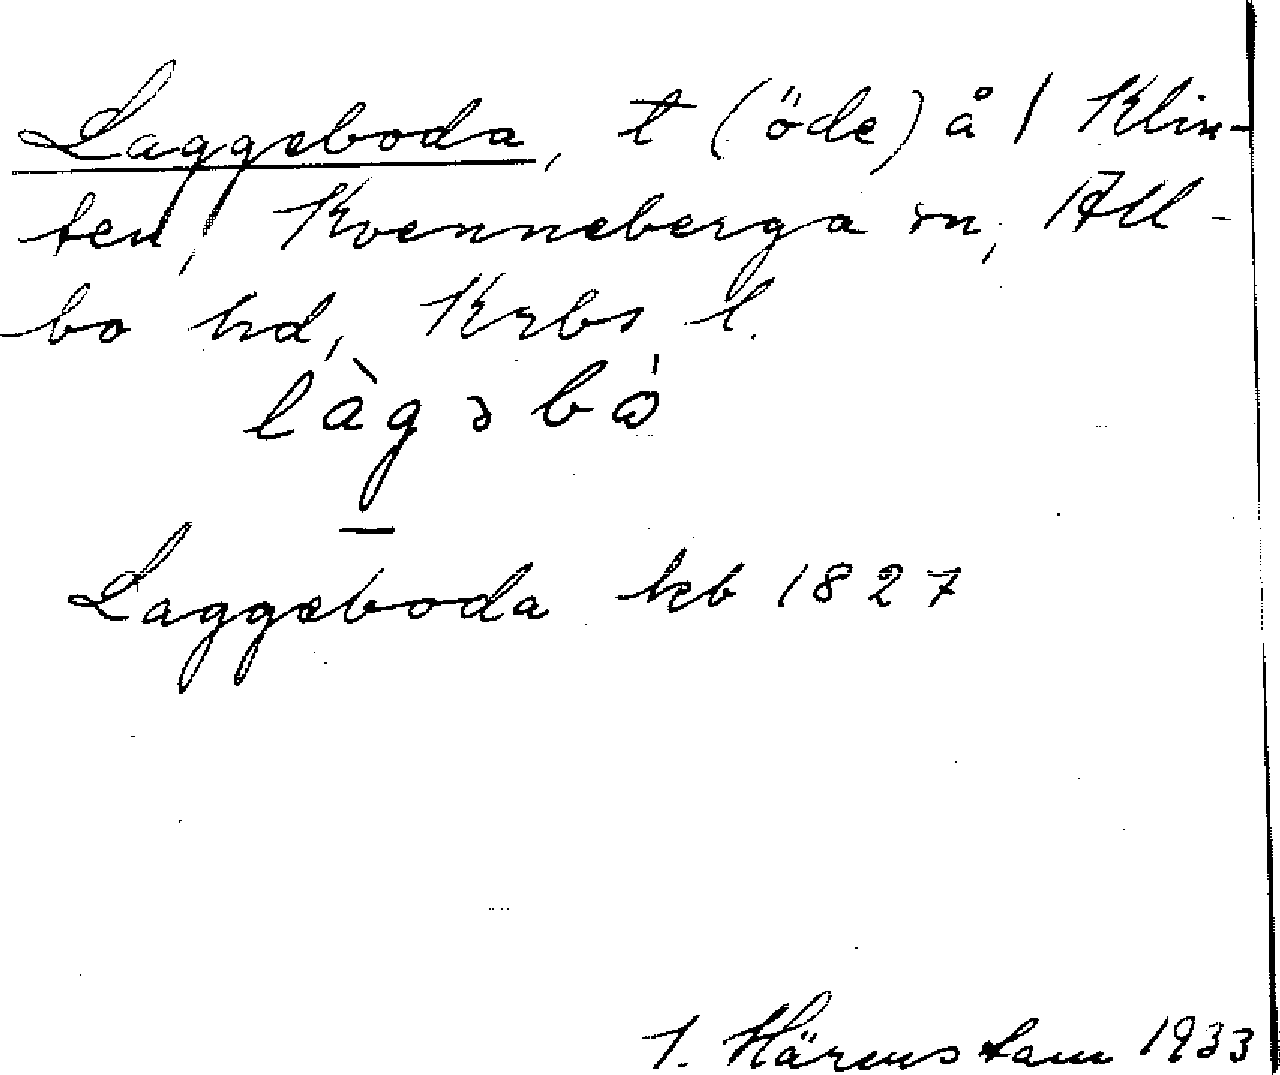 Laggeboda, t (öde) å / Klin-
ten /, Kvenneberga sn, All-
bo hd, Krbs l.
làgəbǻ
Laggeboda kb 1827
J. Härenstam 1933